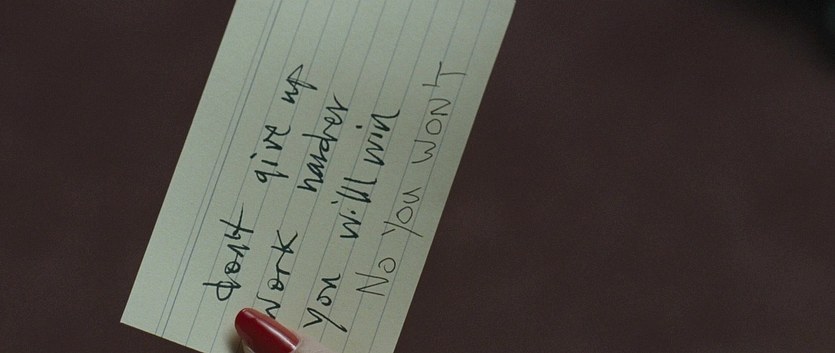 dont give up
work harder
you will win
No YOU WONT